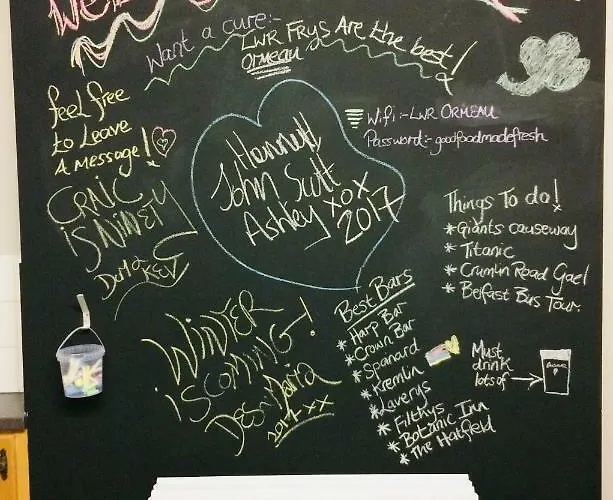 Want a cure:-
LWR FRYS Are the best!
ORMEAU
feel free
to Leave
A message!
Wifi:- LWR ORMEAU
Password:- goodfoodmadefresh
Hannah
John Scott
Ashley xox
2017
CRAIC
iS NINETY
Things To do!
*Giants causeway
*Titanic
*Crumlin Road Gael
*Belfast Bus Tour.
Best Bars
*Harp Bar
*Crown Bar
*Spanard
*Kremlin
*Laverys
*Filthys
*Botanic Inn
*The Hatfield
Must
drink
lots of
WiNTER
iS COMING!
2017 xx